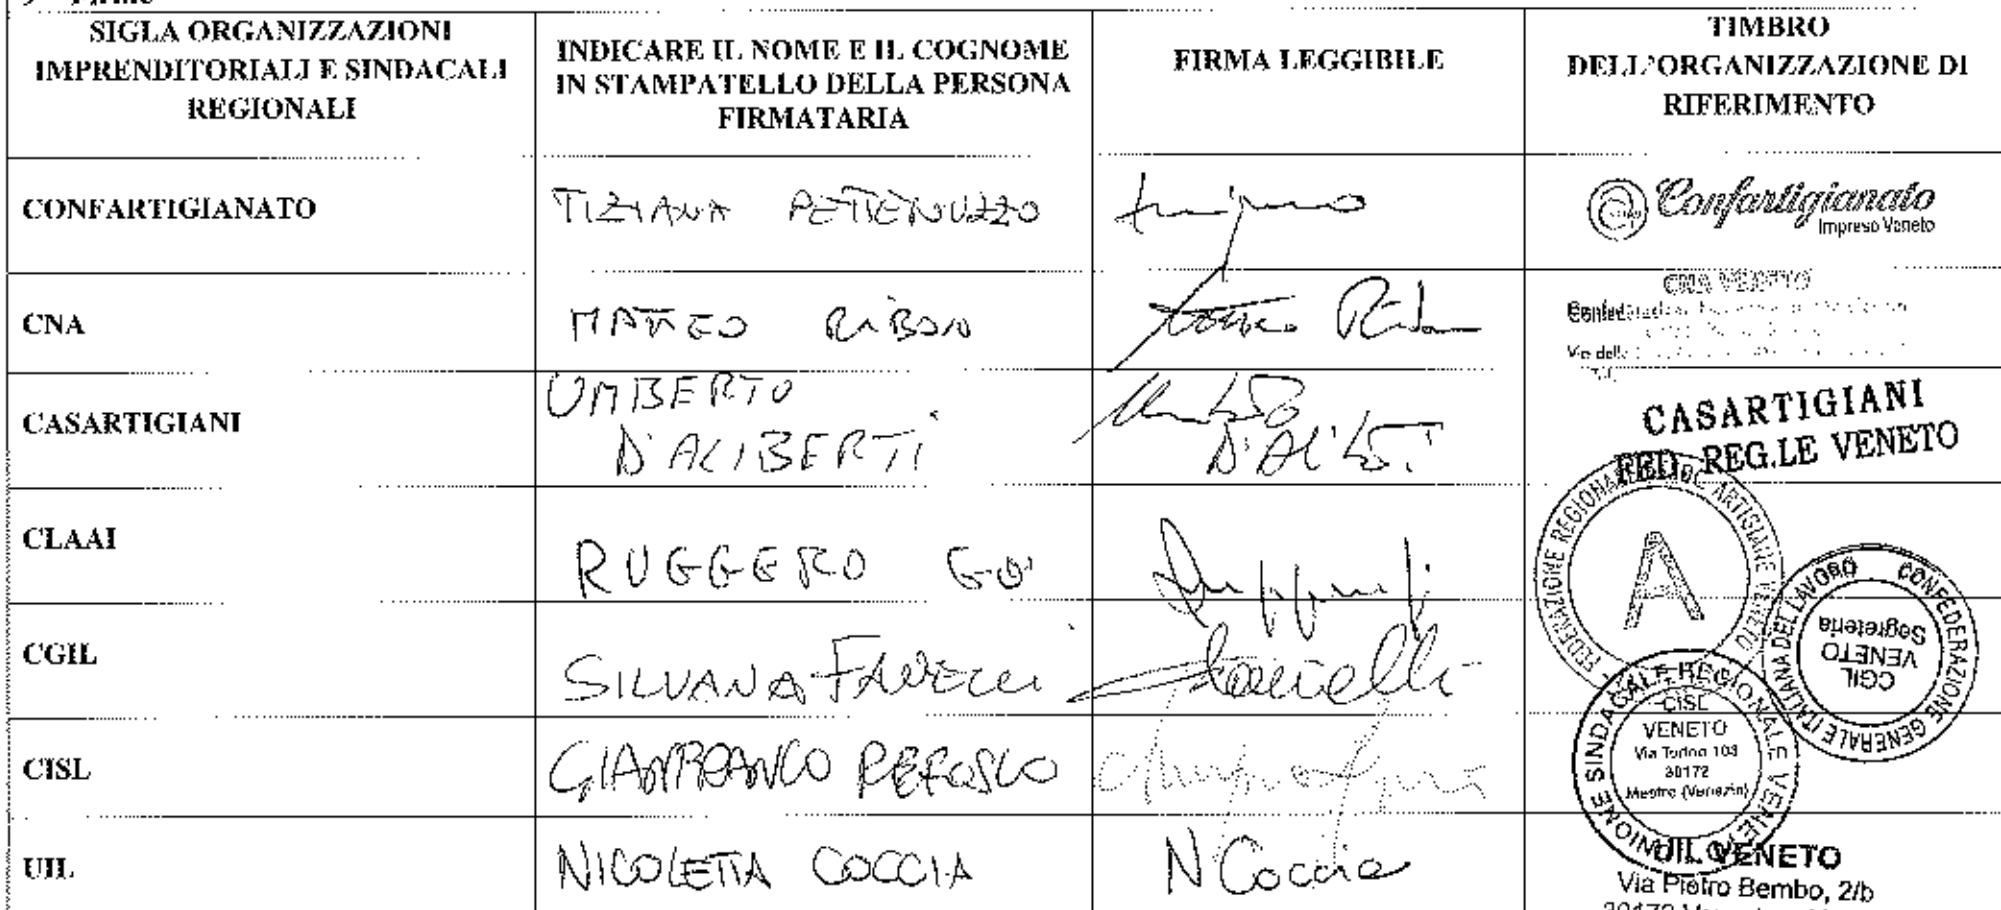 SIGLA ORGANIZZAZIONI
IMPRENDITORIALI E SINDACALI
REGIONALI
INDICARE IL NOME E IL COGNOME
IN STAMPATELLO DELLA PERSONA
FIRMATARIA
FIRMA LEGGIBILE
TIMBRO
DELL'ORGANIZZAZIONE DI
RIFERIMENTO
CONFARTIGIANATO
TIZIANA PETTENUZZO
Confartigianato
Imprese Veneto
CNA
MATTEO RIBON
CNA VENETO
Via della
CASARTIGIANI
UMBERTO
D'ALIBERTI
CASARTIGIANI
FED. REG.LE VENETO
CLAAI
RUGGERO GO'
FEDERAZIONE REGIONALE ARTIGIANE VENETO
A
CGIL
SILVANA FANELLI
Fanelli
CONFEDERAZIONE GENERALE ITALIANA DEL LAVORO
CGIL
VENETO
Segreteria
CISL
GIANFRANCO REFOSCO
UNIONE SINDACALE REGIONALE VENETO
CISL
VENETO
Via Torino 103
30172
Mestre (Venezia)
UIL
NICOLETTA COCCIA
N Coccia
UIL VENETO
Via Pietro Bembo, 2/b